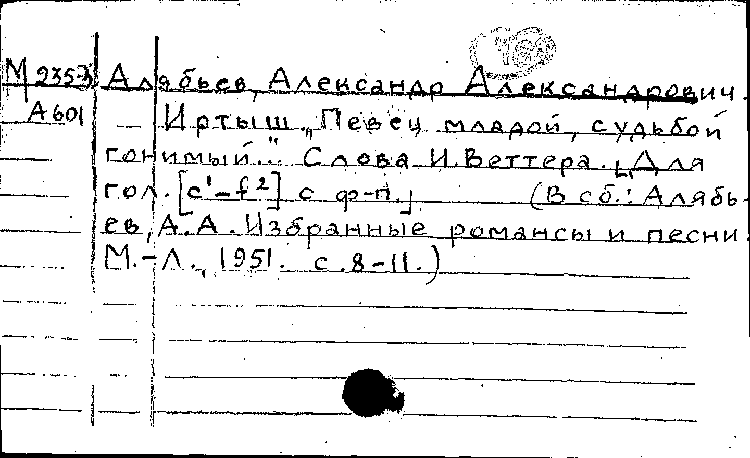 М 235-3 Алябьев, Александр Александрович.
А601 Иртыш „Певец младой, судьбой
гонимый..." Слова И. Веттера. [Для
гол. [c¹-f²] с ф-п.] (В сб.: Алябь-
ев, А.А. Избранные романсы и песни.
М.-Л., 1951. с. 8-11.)